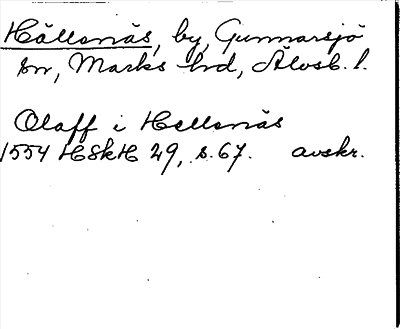 Hällsnäs, by, Gunnarsjö
sn, Marks hd, Älvsb. l.
Olaff i Hellsnäs
1554 HSkH 29, s. 67. avskr.